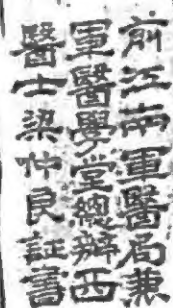 前江南軍醫局兼
軍醫學堂總辦西
醫士梁仲民証書